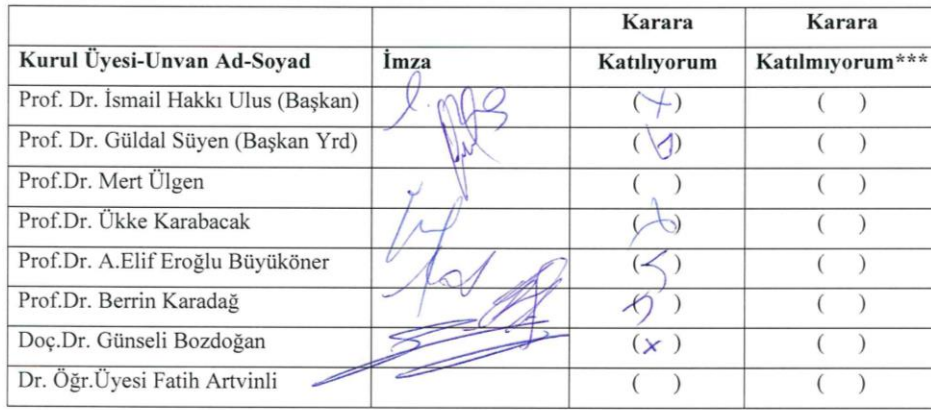 Kurul Üyesi-Unvan Ad-Soyad İmza Karara Katılıyorum Karara Katılmıyorum***
Prof. Dr. İsmail Hakkı Ulus (Başkan) (x) ( )
Prof. Dr. Güldal Süyen (Başkan Yrd) (x) ( )
Prof.Dr. Mert Ülgen ( ) ( )
Prof.Dr. Ükke Karabacak (x) ( )
Prof.Dr. A.Elif Eroğlu Büyüköner (x) ( )
Prof.Dr. Berrin Karadağ (x) ( )
Doç.Dr. Günseli Bozdoğan (x) ( )
Dr. Öğr.Üyesi Fatih Artvinli ( ) ( )